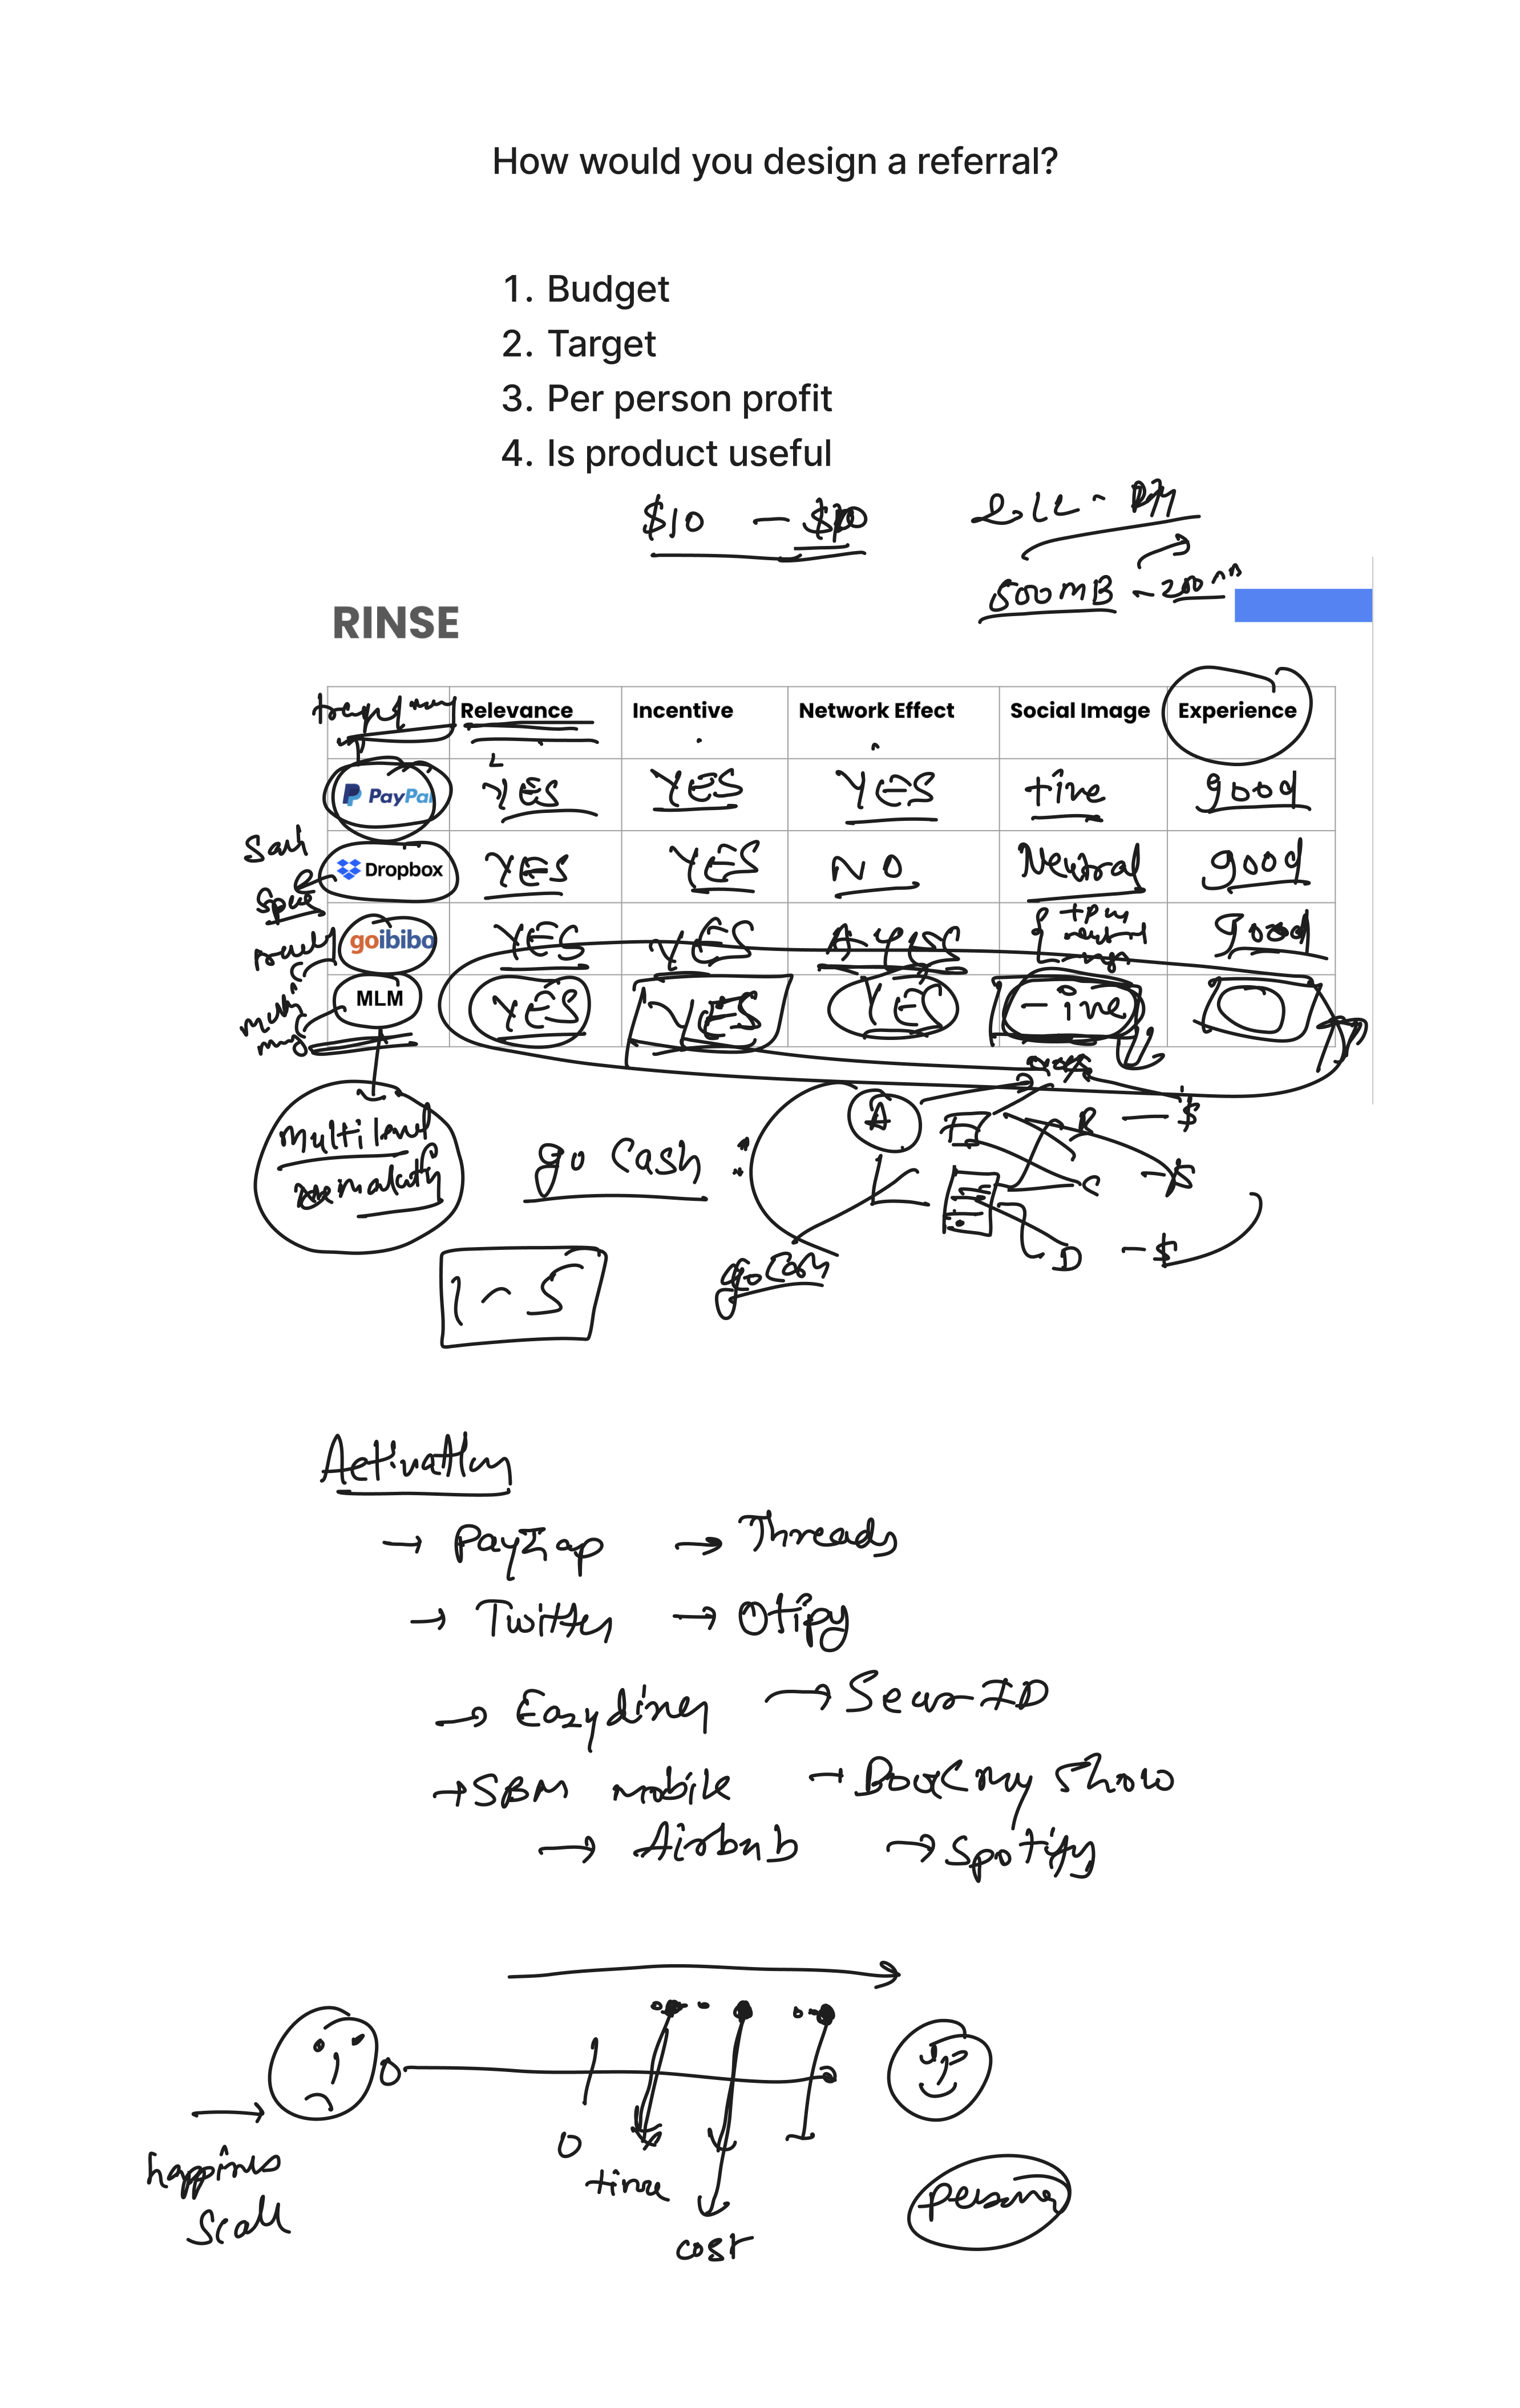 How would you design a referral?
1. Budget
2. Target
3. Per person profit
4. Is product useful
$10 -
500MB - 200
RINSE
Relevance Incentive Network Effect Social Image Experience
PayPal YES YES YES +ive good
Sauh
Dropbox YES YES NO Neutral good
goibibo YES YES YES good
MLM YES YES YES -ive
A
B - $
C - $
D - $
go Cash :
goCash
1 - 5
Activation
→ PayZap → Threads
→ Twitter → Otipy
→ Eazydiner →
→ SBM mobile → BookMy Show
→ Airbnb → Spotify
0
0
time
happiness
scale
cost
persona